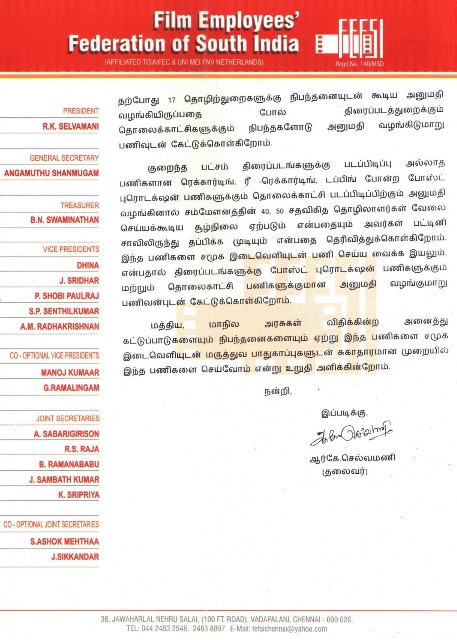 Film Employees'
Federation of South India
(AFFILIATED TO AIFEC & UNI MEI FNV NETHERLANDS)
FEFSI
Regd.No. 148/MSD
PRESIDENT
R.K. SELVAMANI
GENERAL SECRETARY
ANGAMUTHU SHANMUGAM
TREASURER
B.N. SWAMINATHAN
VICE PRESIDENTS
DHINA
J. SRIDHAR
P. SHOBI PAULRAJ
S.P. SENTHILKUMAR
A.M. RADHAKRISHNAN
CO - OPTIONAL VICE PRESIDENTS
MANOJ KUMAAR
G.RAMALINGAM
JOINT SECRETARIES
A. SABARIGIRISON
R.S. RAJA
B. RAMANABABU
J. SAMBATH KUMAR
K. SRIPRIYA
CO - OPTIONAL JOINT SECRETARIES
S.ASHOK MEHTHAA
J.SIKKANDAR
தற்போது 17 தொழிற்துறைகளுக்கு நிபந்தனையுடன் கூடிய அனுமதி
வழங்கியிருப்பதை போல் திரைப்படத்துறைக்கும்
தொலைக்காட்சிகளுக்கும் நிபந்தகளோடு அனுமதி வழங்கிடுமாறு
பணிவுடன் கேட்டுக்கொள்கிறோம்.
குறைந்த பட்சம் திரைப்படங்களுக்கு படப்பிடிப்பு அல்லாத
பணிகளான ரெக்கார்டிங், ரீ -ரெக்கார்டிங், டப்பிங் போன்ற போஸ்ட்
புரொடக்ஷன் பணிகளுக்கும் தொலைக்காட்சி படப்பிடிப்பிற்கும் அனுமதி
வழங்கினால் சம்மேளனத்தின் 40, 50 சதவிகித தொழிலாளர்கள் வேலை
செய்யக்கூடிய சூழ்நிலை ஏற்படும் என்பதையும் அவர்கள் பட்டினி
சாவிலிருந்து தப்பிக்க முடியும் என்பதை தெரிவித்துக்கொள்கிறோம்.
இந்த பணிகளை சமூக இடைவெளியுடன் பணி செய்ய வைக்க இயலும்.
என்பதால் திரைப்படங்களுக்கு போஸ்ட் புரொடக்ஷன் பணிகளுக்கும்
மற்றும் தொலைகாட்சி பணிகளுக்குமான அனுமதி வழங்குமாறு
பணிவன்புடன் கேட்டுக்கொள்கிறோம்.
மத்திய, மாநில அரசுகள் விதிக்கின்ற அனைத்து
கட்டுப்பாடுகளையும் நிபந்தனைகளையும் ஏற்று இந்த பணிகளை சமூக
இடைவெளியுடன் மருத்துவ பாதுகாப்புகளுடன் சுகாதாரமான முறையில்
இந்த பணிகளை செய்வோம் என்று உறுதி அளிக்கின்றோம்.
நன்றி,
இப்படிக்கு,
ஆர்கே.செல்வமணி
(தலைவர்)
36, JAWAHARLAL NEHRU SALAI, (100 FT. ROAD), VADAPALANI, CHENNAI - 600 026.
TEL: 044 2483 2548, 2483 8897 E-Mail: fefsichennai@yahoo.com